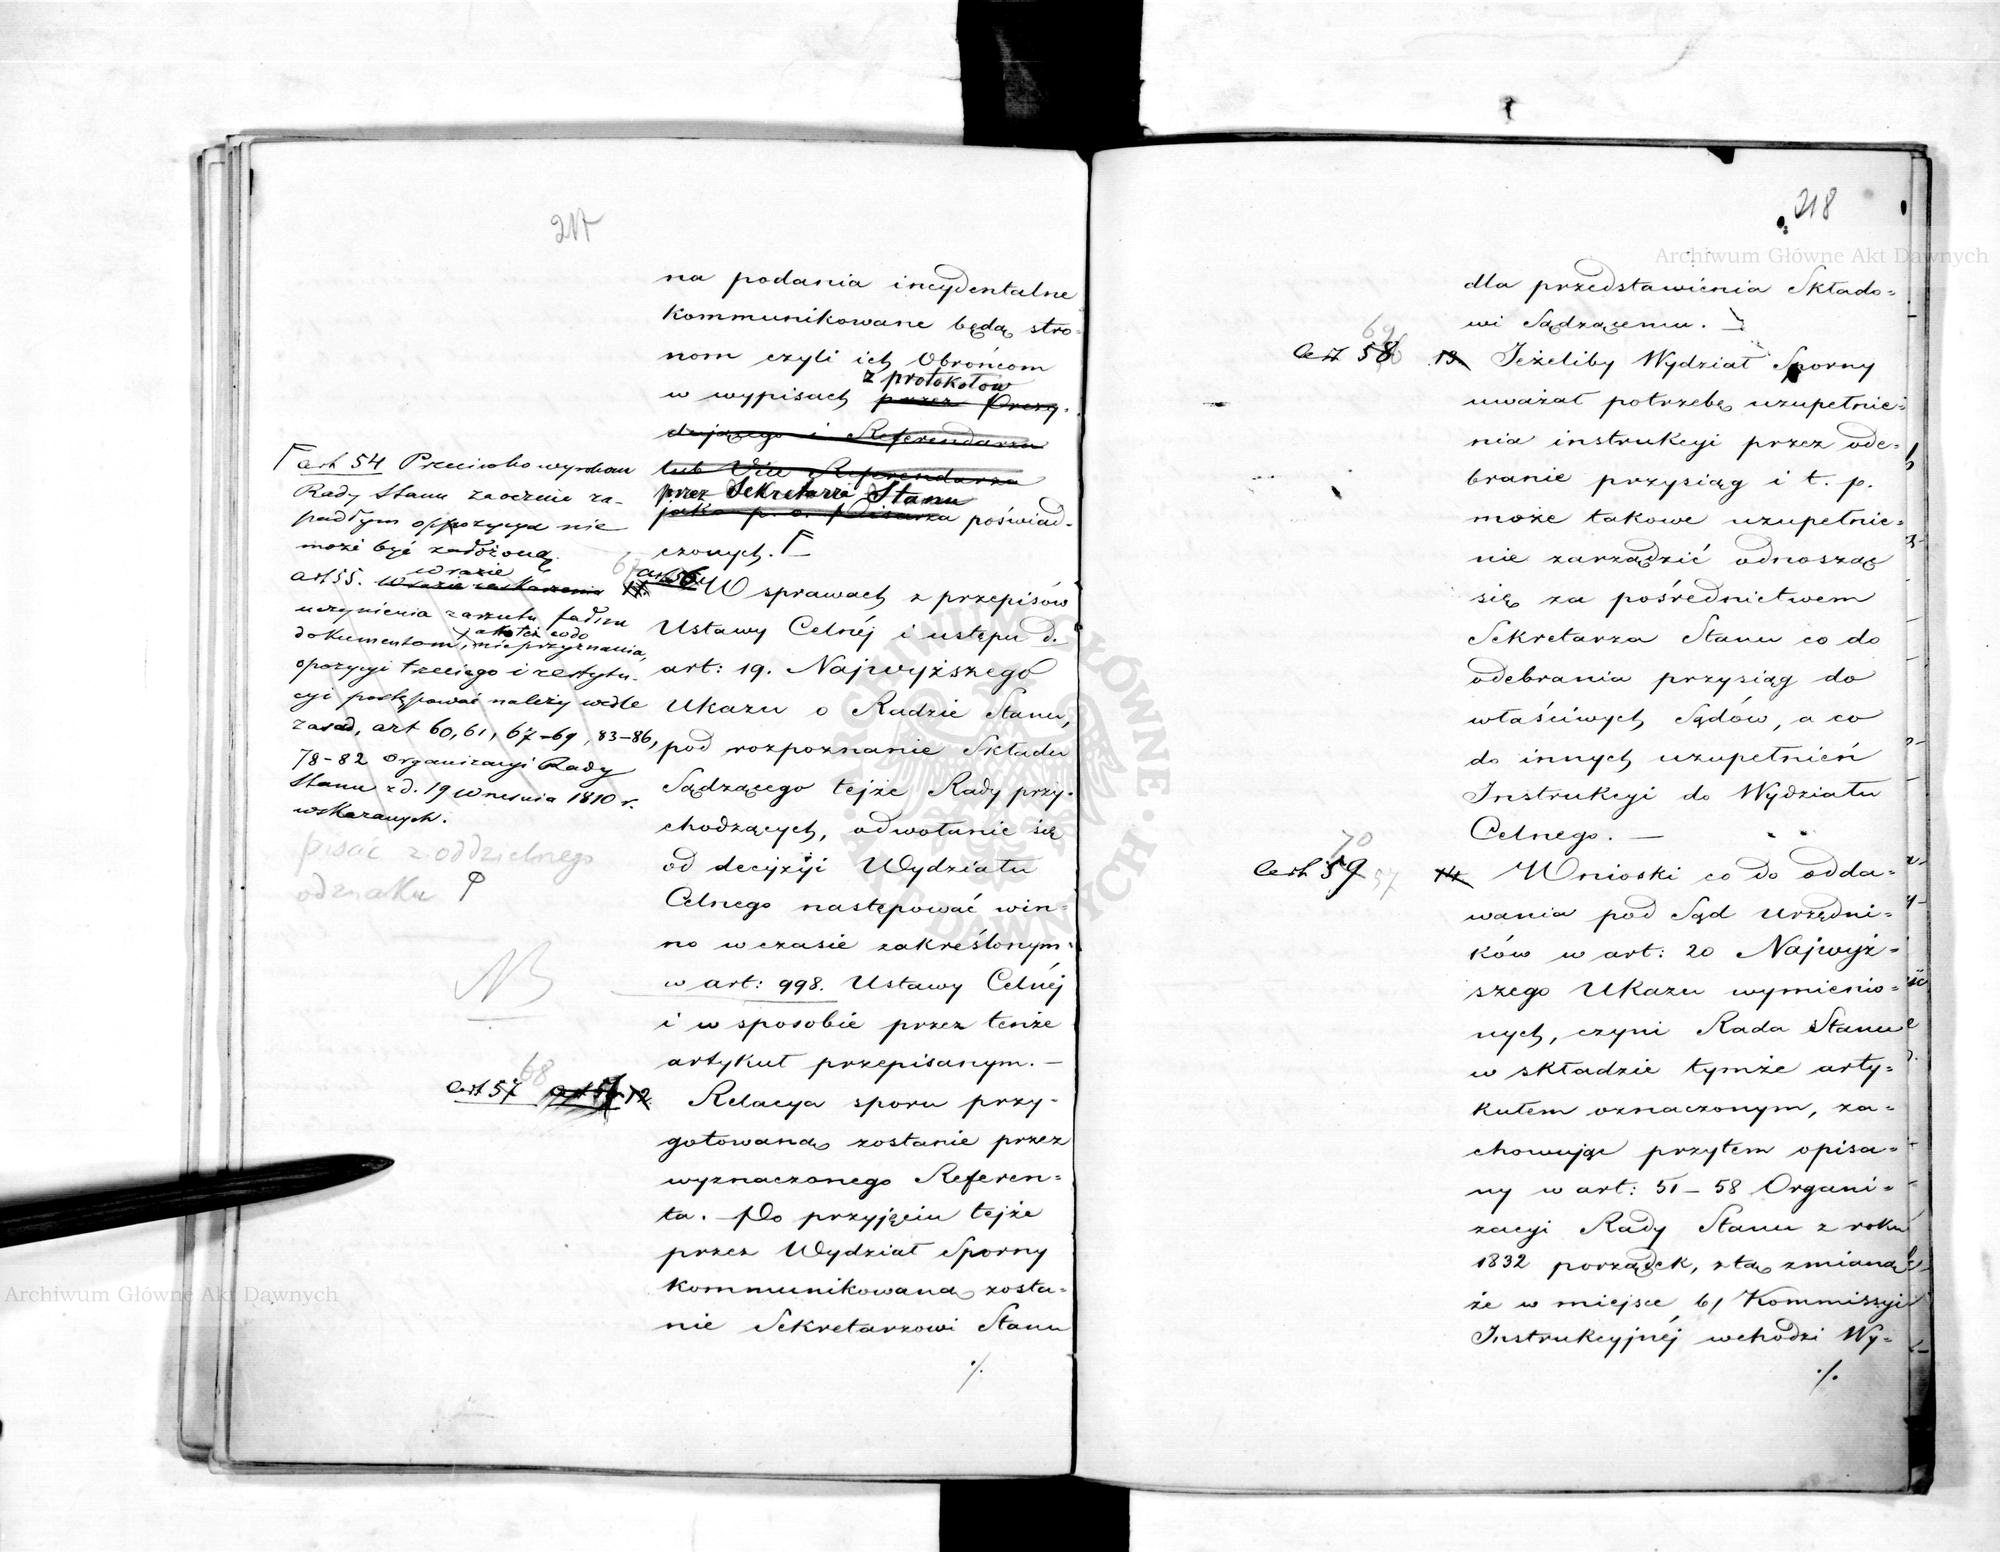 217
na podania incydentalne
kommunikowane będą stro-
nom czyli ich Obrońcom
z protokołów
w wypisach przez Prezy-
dującego i Referendarza
lub Vice Referendarza
przez Sekretarza Stanu
jako p. o. Pisarza poświad-
czonych.
art 54 Przeciwko wyrokom
Rady Stanu zaocznie za-
padłym oppozycya nie
może być założoną.
w razie
art 55. W razie zaskarżenia
uczynienia zarzutu fałszu
a także co do
dokumentom, nieprzyznania,
opozycyi trzeciego i restytu-
cyi postępować należy wedle
zasad, art 60, 61, 67-69, 83-86,
78-82 Organizacyi Rady
Stanu z d. 19 Września 1810 r.
wskazanych.
pisać z oddzielnego
odznaku
NB
67
art 56
11. W sprawach z przepisów
Ustawy Celnéj i ustępu d.
art: 19. Najwyższego
Ukazu o Radzie Stanu,
pod rozpoznanie Składu
Sądzącego tejże Rady przy-
chodzących, odwołanie się
od decyzyi Wydziału
Celnego następować win-
no w czasie zakreślonym
w art: 998. Ustawy Celnéj
i w sposobie przez tenże
artykuł przepisanym. —
68
Art 57 art 57 12. Relacya sporu przy-
gotowaną zostanie przez
wyznaczonego Referen-
ta. Po przyjęciu tejże
przez Wydział Sporny
kommunikowaną zosta-
nie Sekretarzowi Stanu
./.
218
dla przedstawienia Składo-
wi Sądzącemu. —
69
Art 58 13. Jeżeliby Wydział Sporny
uważał potrzebę uzupełnie-
nia instrukcyi przez ode-
branie przysiąg i t. p.
może takowe uzupełnie-
nie zarządzić odnosząc
się za pośrednictwem
Sekretarza Stanu co do
odebrania przysiąg do
właściwych Sądów, a co
do innych uzupełnień
Instrukcyi do Wydziału
Celnego. —
70
Art 59 57 14. Wnioski co do odda-
wania pod Sąd Urzędni-
ków w art: 20 Najwyż-
szego Ukazu wymienio-
nych, czyni Rada Stanu
w składzie tymże arty-
kułem oznaczonym, za-
chowując przytem opisa-
ny w art: 51-58 Organi-
zacyi Rady Stanu z roku
1832 porządek, z tą zmianą
że w miejsce b/ Kommissyi
Instrukcyjnéj wchodzi Wy-
./.
Archiwum Główne Akt Dawnych
Archiwum Główne Akt Dawnych
ARCHIWUM GŁÓWNE AKT DAWNYCH